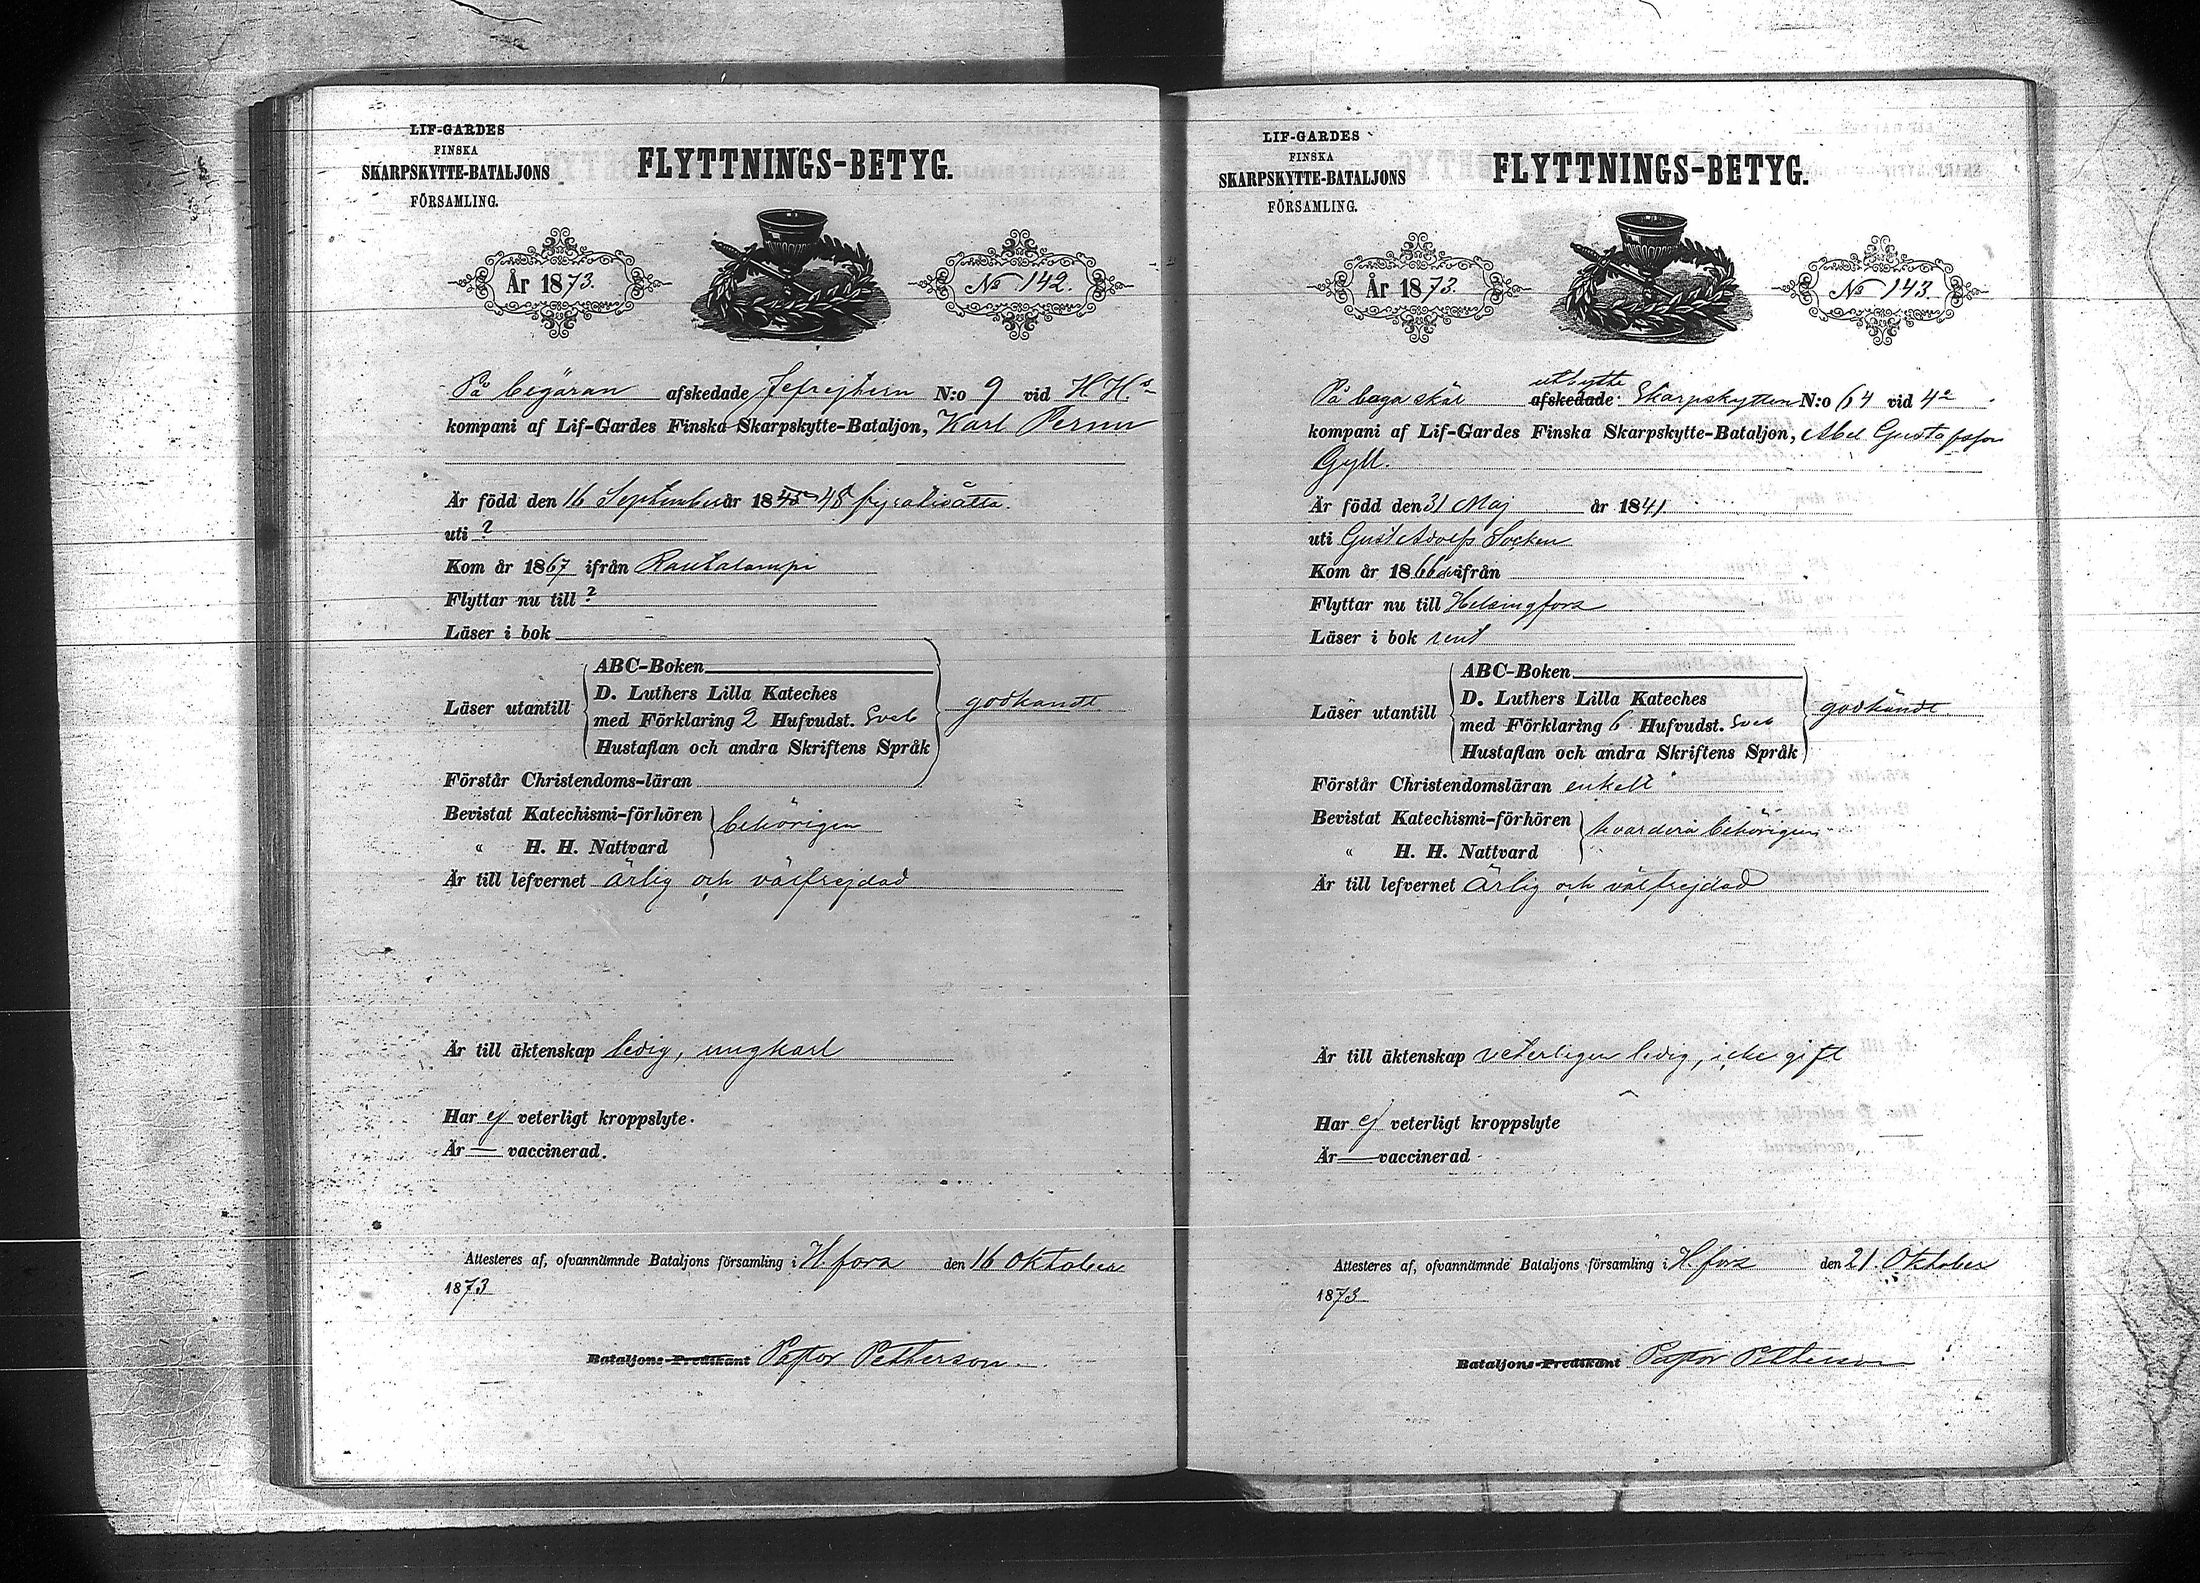 LIF-GARDES
FINSKA
SKARPSKYTTE-BATALJONS
FÖRSAMLING.
FLYTTNINGS-BETYG.
År 1873.
No 142.
På begäran afskedade Jefrejtern N:o 9 vid H. H.s
kompani af Lif-Gardes Finska Skarpskytte-Bataljon, Karl
Är född den 16 September år 1845 48 fyratioåtta.
uti ?
Kom år 1867 ifrån Rautalampi
Flyttar nu till ?
Läser i bok
Läser utantill
ABC-Boken
D. Luthers Lilla Kateches
med Förklaring 2 Hufvudst. Sveb
Hustaflan och andra Skriftens Språk
godkändt
Förstår Christendoms-läran
Bevistat Katechismi-förhören
" H. H. Nattvard
behörigen
Är till lefvernet ärlig och välfrejdad
Är till äktenskap ledig, ungkarl
Har ej veterligt kroppslyte.
Är — vaccinerad.
Attesteres af, ofvannämnde Bataljons församling i H.fors den 16 Oktober
1873
Bataljons-Predikant Pastor Petterson.
LIF-GARDES
FINSKA
SKARPSKYTTE-BATALJONS
FÖRSAMLING.
FLYTTNINGS-BETYG.
År 1873.
No 143.
utbytte
På afskedade Skarpskytten N:o 64 vid 4e
kompani af Lif-Gardes Finska Skarpskytte-Bataljon, Abel Gustafsson
Gyll.
Är född den 31 Maj år 1841.
uti Gust Adolfs Socken
Kom år 1866 ifrån
Flyttar nu till Helsingfors
Läser i bok rent
Läser utantill
ABC-Boken
D. Luthers Lilla Kateches
med Förklaring 6 Hufvudst. Sveb
Hustaflan och andra Skriftens Språk
godkändt.
Förstår Christendomsläran enkelt
Bevistat Katechismi-förhören
" H. H. Nattvard
hvardera behörigen
Är till lefvernet Ärlig och välfrejdad
Är till äktenskap veterligen ledig, icke gift
Har ej veterligt kroppslyte
Är — vaccinerad
Attesteres af, ofvannämnde Bataljons församling i H.fors den 21. Oktober
1873
Bataljons-Predikant Pastor Petterson